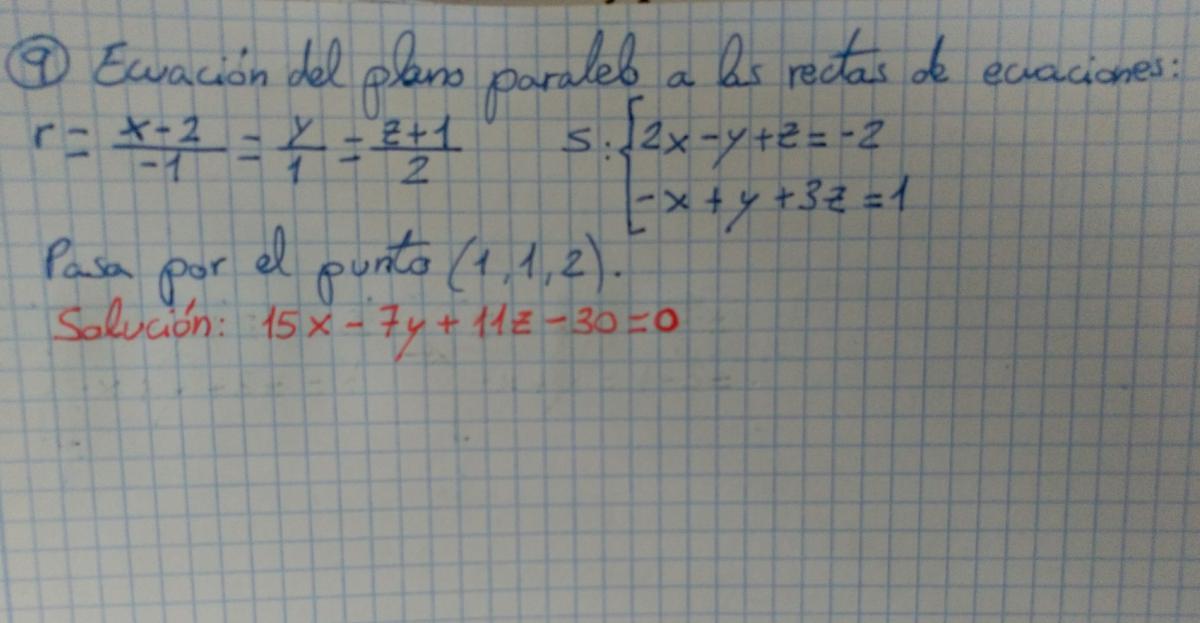 9 Ecuación del plano paralelo a las rectas de ecuaciones:
r = (x-2)/-1 = y/1 = (z+1)/2 s: { 2x-y+z=-2
-x+y+3z=1
Pasa por el punto (1,1,2).
Solución: 15x-7y+11z-30=0